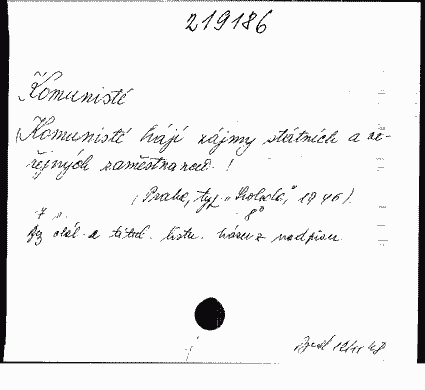 219186
Komunisté
Komunisté hájí zájmy státních a ve-
řejných zaměstnanců!
(Praha, typ. „Svoboda,“ 1946).
8°
Bez obál. a titul. listu. Název z nadpisu.